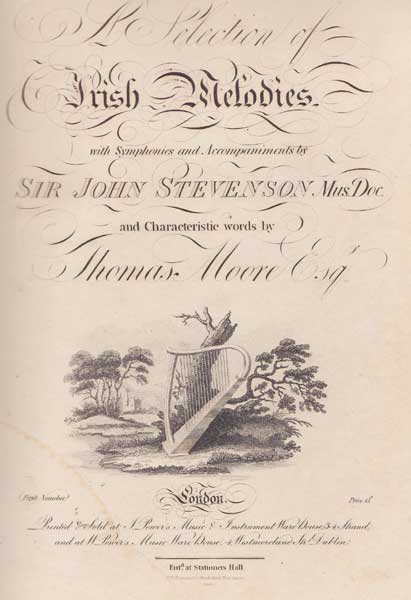 A Selection of
Irish Melodies.
with Symphonies and Accompaniments by
SIR JOHN STEVENSON Mus. Doc.
and Characteristic words by
Thomas Moore Esqr.
(First Number)
London.
Price 15s
Printed & Sold at J. Power's Music & Instrument Ware House, 34 Strand,
and at W. Power's Music Ware House, 4 Westmoreland Str. Dublin.
Entd. at Stationers Hall